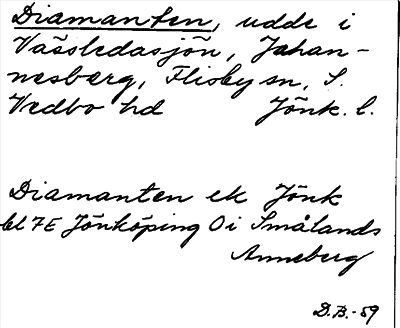 Diamanten, udde i
Vässledasjön, Johan-
nesberg, Flisby sn, S.
Vedbo hd Jönk. l.
Diamanten ek Jönk
bl 7E Jönköping Oi Smålands
Anneberg
D.B.-59